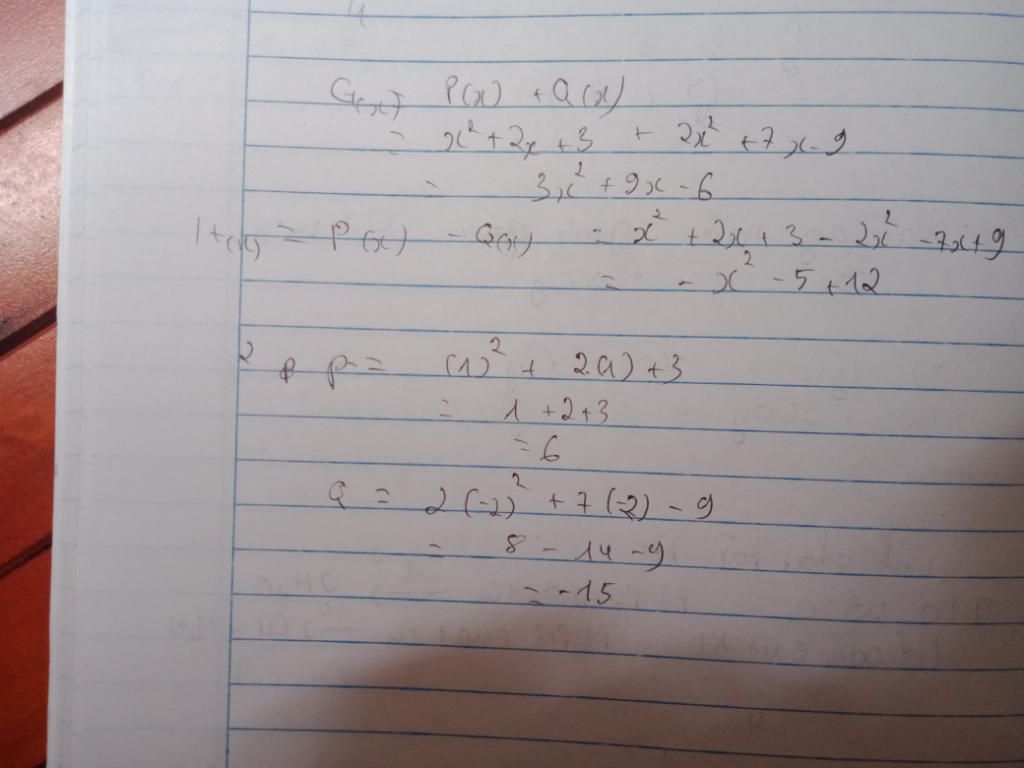 G(x) = P(x) + Q(x)
= x² + 2x + 3 + 2x² + 7x - 9
= 3x² + 9x - 6
H(x) = P(x) - Q(x) = x² + 2x + 3 - 2x² - 7x + 9
= - x² - 5 + 12
2 P = (1)² + 2(1) + 3
= 1 + 2 + 3
= 6
Q = 2(-2)² + 7(-2) - 9
= 8 - 14 - 9
= -15